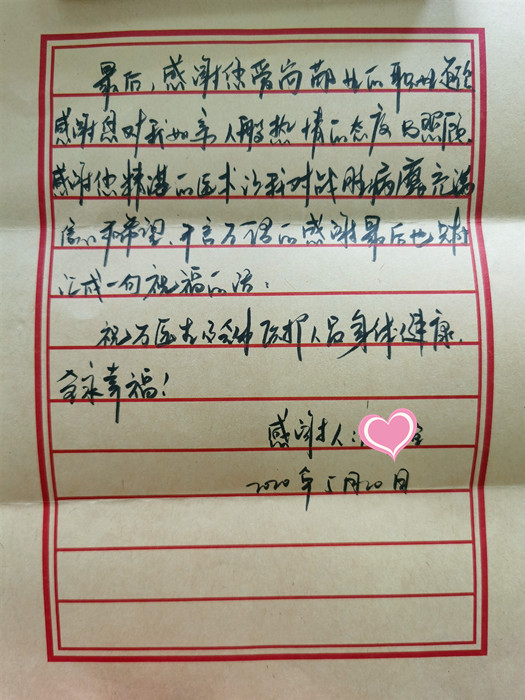 最后,感谢您高尚的职业道德
感谢您对我如亲人般热情的态度与照顾,
感谢您精湛的医术让我对战胜病魔充满
信心和希望,千言万语的感谢最后也只能
汇成一句祝福的话:
祝万医生及全体医护人员身体健康,
全家幸福!
感谢人:
2020年5月20日